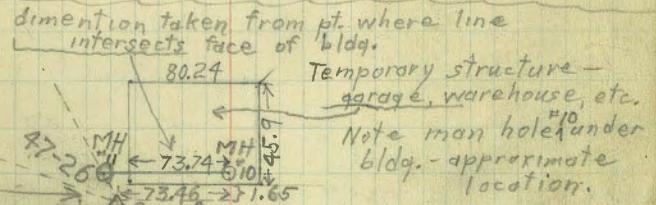 dimention taken from pt. where line
intersects face of bldg.
80.24
Temporary structure –
garage, warehouse, etc.
45.9
Note man hole #10 under
bldg. - approximate
location.
47-26
MH
11
73.74
MH
#10
73.46
1.65